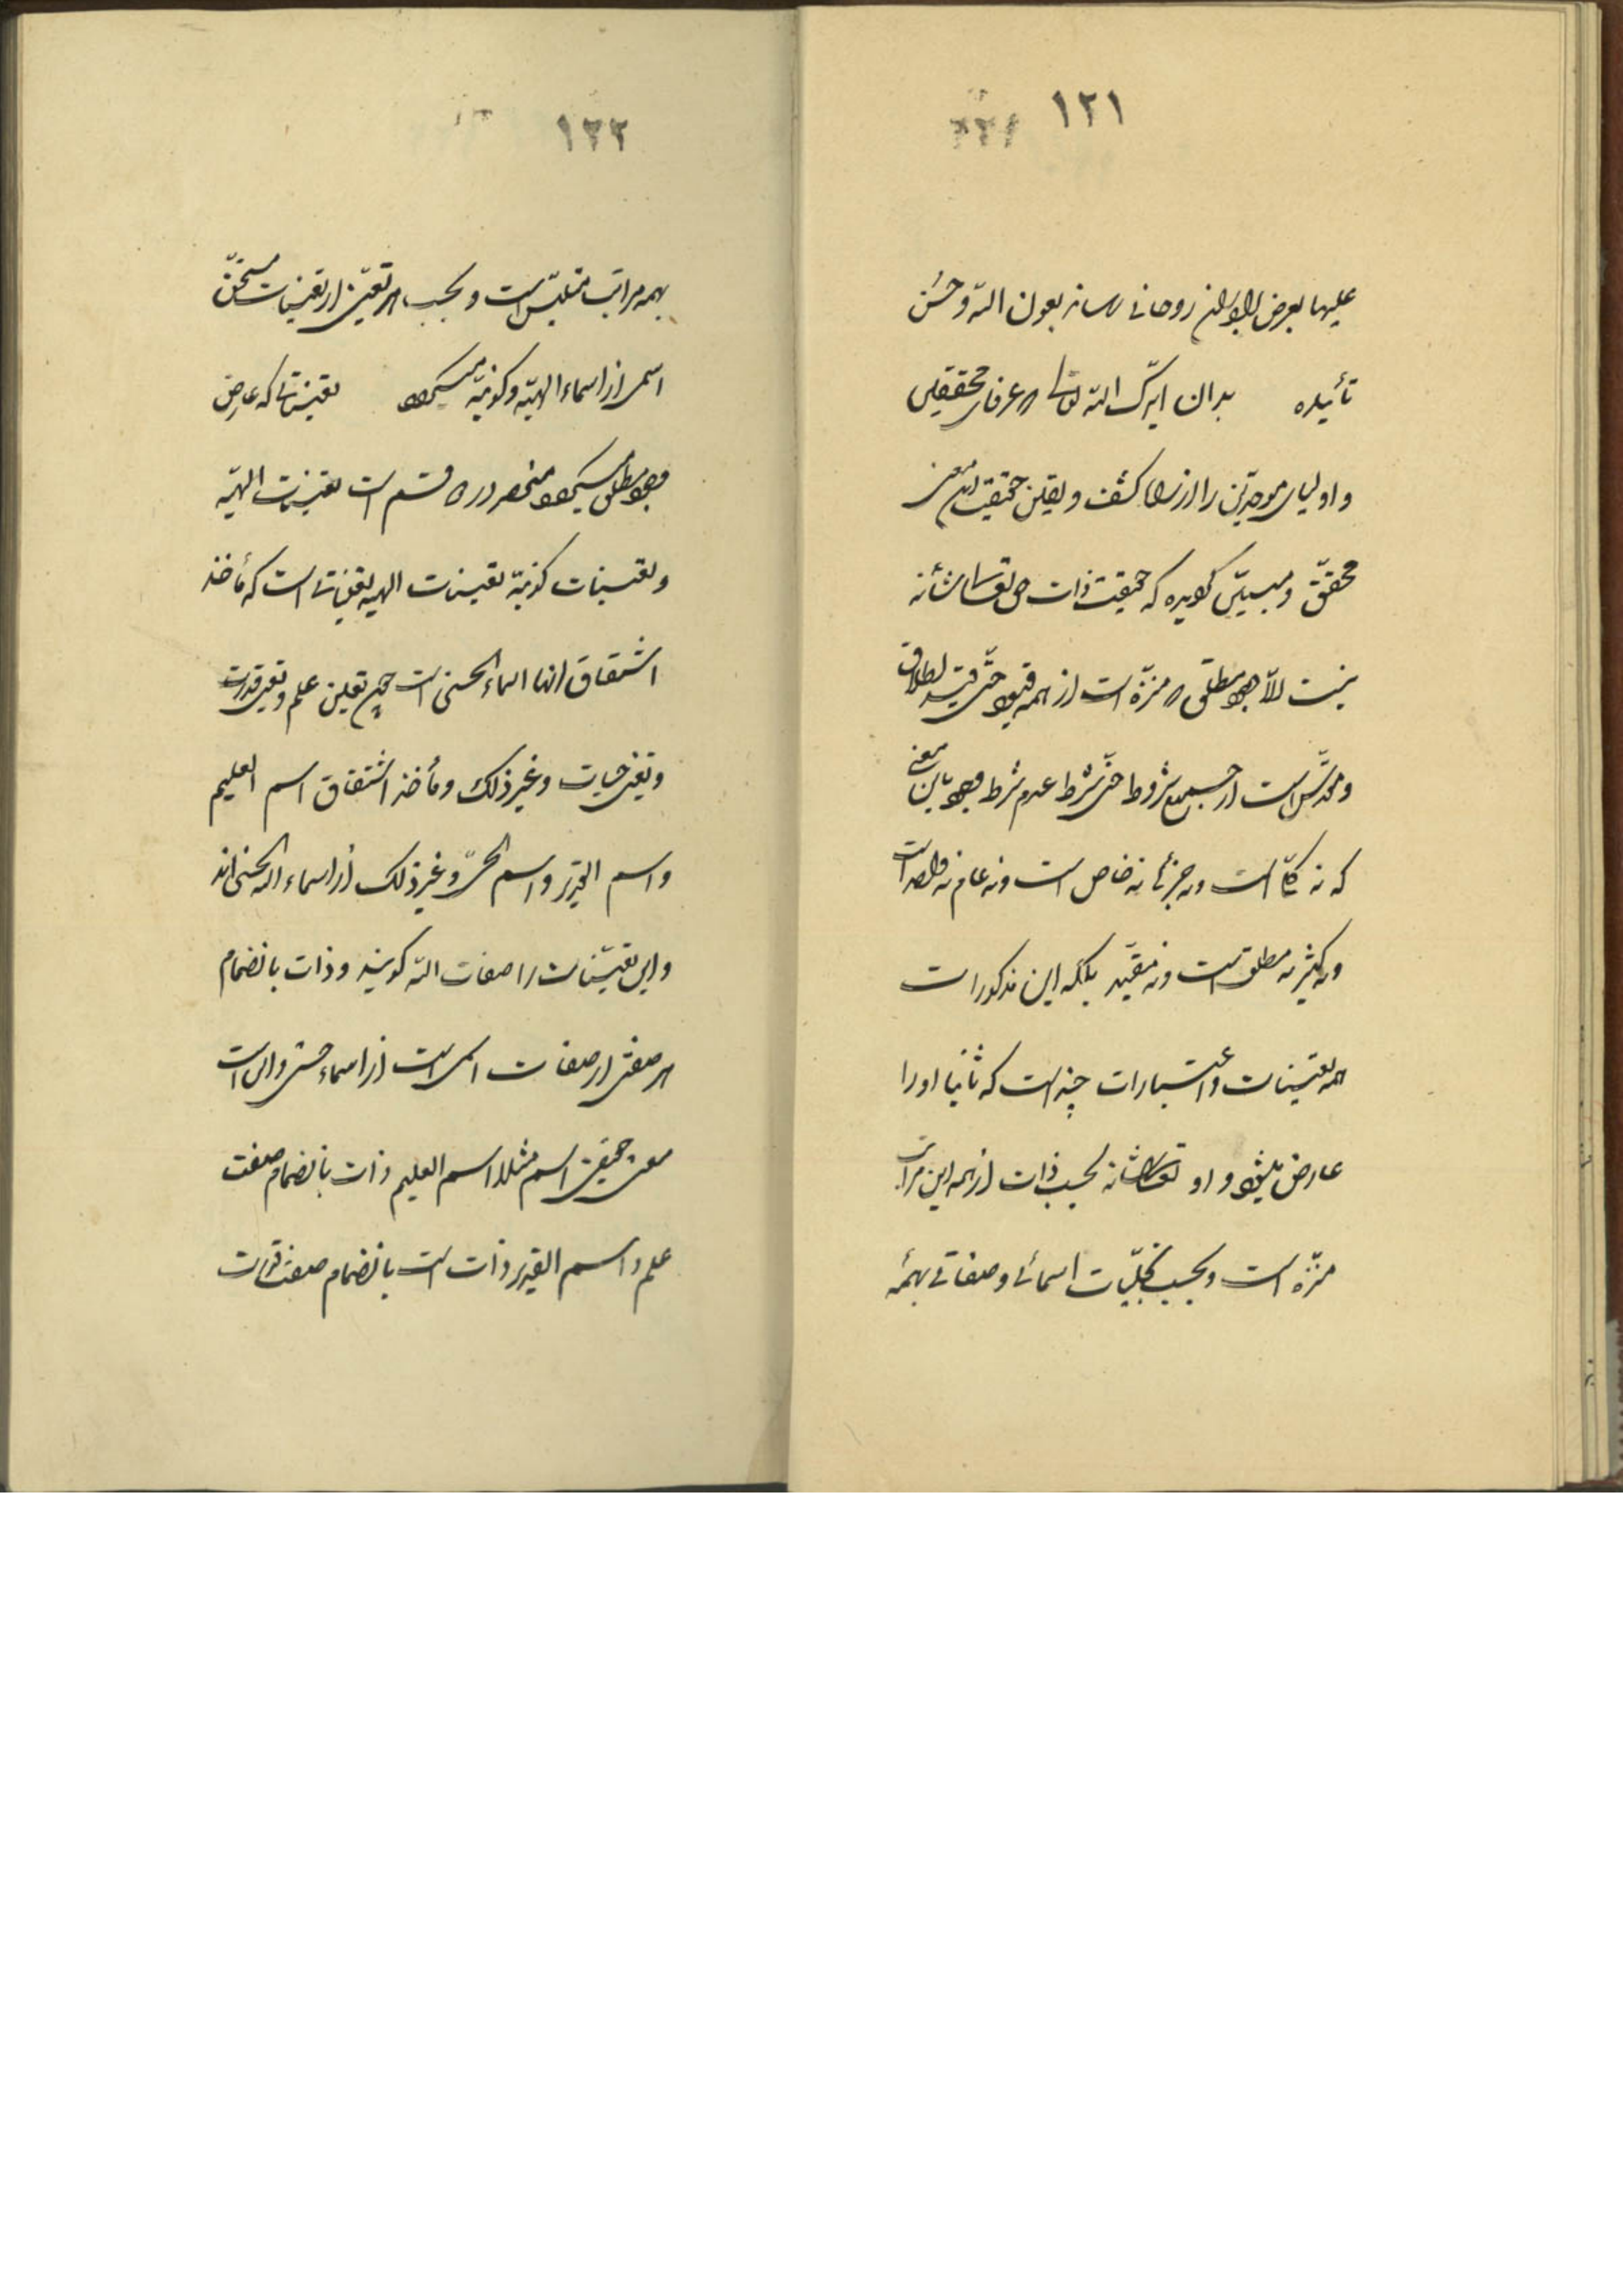 ١٢١
علیها بعرض اخوان روحانی رساند بعون الله و حسن
تأییده بدان ایدک الله تعالی که عرفای محققین
و اولیای موحدین را از راه کشف و یقین حقیقت این معنی
محقق و مبین گردیده که حقیقت ذات حق تعالی شأنه
نیست الا وجود مطلق که منزه است از همه قیود حتی قید اطلاق
و مقدس است از جمیع شروط حتی شرط عدم شرط وجود باین معنی
که نه کلی است و نه جزئی نه خاص است و نه عام نه واحد است
و نه کثیر نه مطلق است و نه مقید بلکه این مذکورات
همه تعینات و اعتبارات چند است که ثانیا او را
عارض میشود و او تعالی شانه بحسب ذات از همه این مراتب
منزه است و بحسب تجلیات اسمائی و صفاتی بهمه
١٢٢
بهمه مراتب متلبس است و بحسب هر تعین از تعینات مستحق
اسمی از اسماء الهیه و کونیه میگردد تعیناتی که عارض
وجود مطلق میگردد منحصر در دو قسم است تعینات الهیه
و تعینات کونیه تعینات الهیه تعیناتی است که مأخذ
اشتقاق انها اسماء الحسنی است چون تعین علم و تعین قدرت
و تعین حیات و غیر ذلک و مأخذ اشتقاق اسم العلیم
و اسم القدیر و اسم الحی و غیر ذلک از اسماء الله الحسنی اند
و این تعینات را صفات الله گویند و ذات بانضمام
هر صفتی از صفات اسمی است از اسماء حسنی و این است
معنی حقیقی اسم مثلا اسم العلیم ذات بانضمام صفت
علم و اسم القدیر ذات است بانضمام صفت قدرت